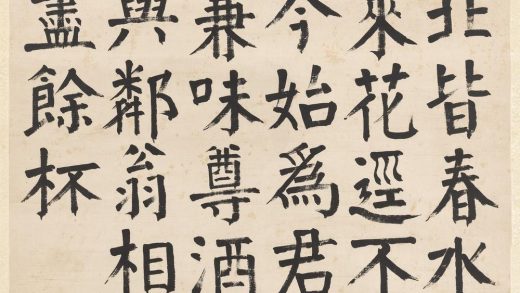 北皆春水
來花逕不
今始爲君
兼味尊酒
與鄰翁相
盡餘杯